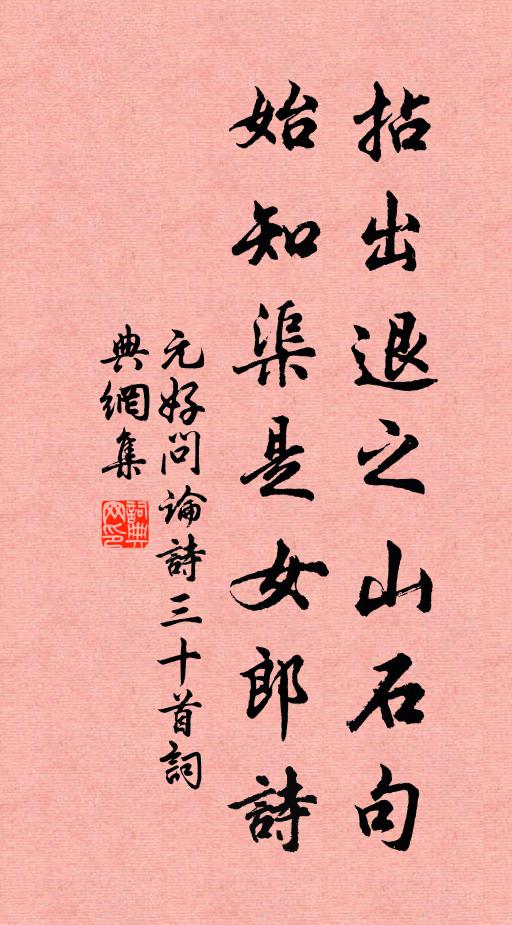 拈出退之山石句
始知渠是女郎詩
元好問論詩三十首詞
典網集
詞典
网印